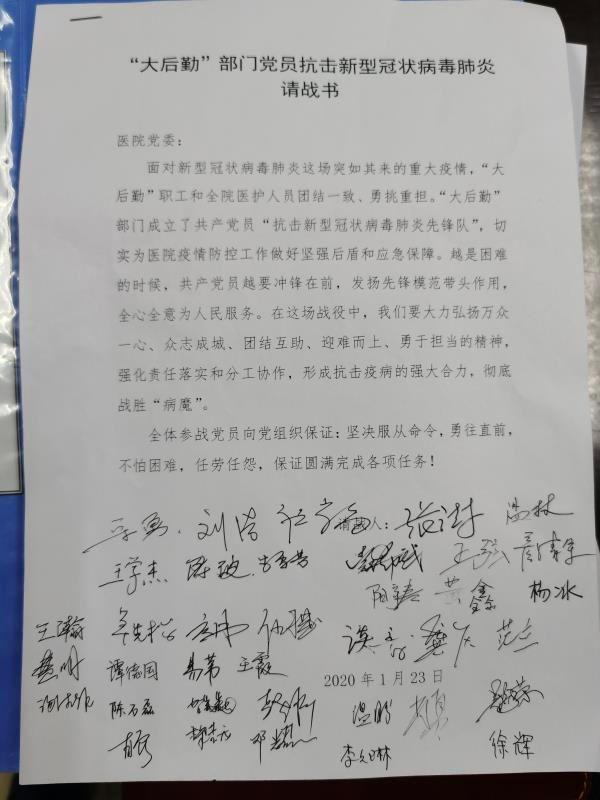 “大后勤”部门党员抗击新型冠状病毒肺炎
请战书
医院党委：
面对新型冠状病毒肺炎这场突如其来的重大疫情，“大
后勤”职工和全院医护人员团结一致、勇挑重担。“大后勤”
部门成立了共产党员“抗击新型冠状病毒肺炎先锋队”，切
实为医院疫情防控工作做好坚强后盾和应急保障。越是困难
的时候，共产党员越要冲锋在前，发扬先锋模范带头作用，
全心全意为人民服务。在这场战役中，我们要大力弘扬万众
一心、众志成城、团结互助、迎难而上、勇于担当的精神，
强化责任落实和分工协作，形成抗击疫病的强大合力，彻底
战胜“病魔”。
全体参战党员向党组织保证：坚决服从命令，勇往直前，
不怕困难，任劳任怨，保证圆满完成各项任务！
刘浩 张涛 温林
王学杰 陈波 王强
黄鑫 杨冰
范立
谭德国 易苇 王霞
2020 年 1 月 23 日
陈石磊 温鹏
邓耀 徐辉